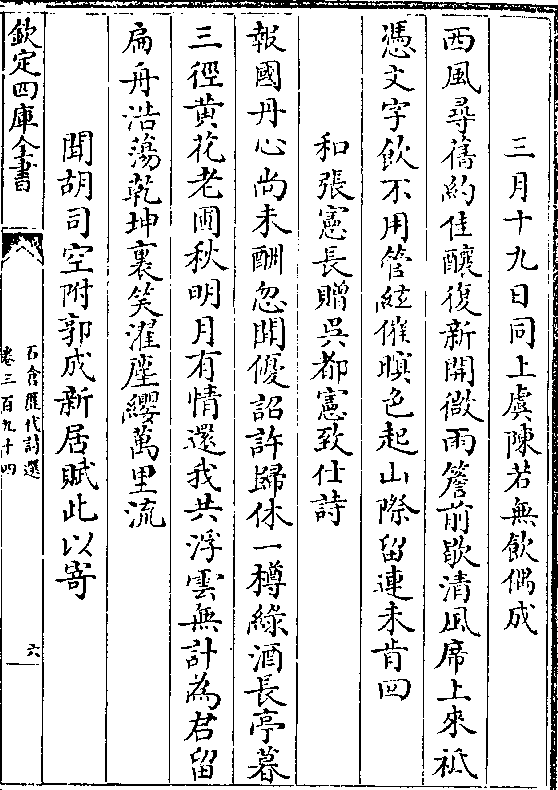 三月十九日同上虞陳若無飲偶成
西風尋舊約佳釀復新開微雨簷前歇清風席上來祗
憑文字飲不用管絃催暝色起山際留連未肯回
和張憲長贈吳都憲致仕詩
報國丹心尚未酬忽聞優詔許歸休一樽綠酒長亭暮
三徑黃花老圃秋明月有情還我共浮雲無計為君留
扁舟浩蕩乾坤裏笑濯塵纓萬里流
聞胡司空附郭成新居賦此以寄
欽定四庫全書
石倉歷代詩選
卷三百九十四
六